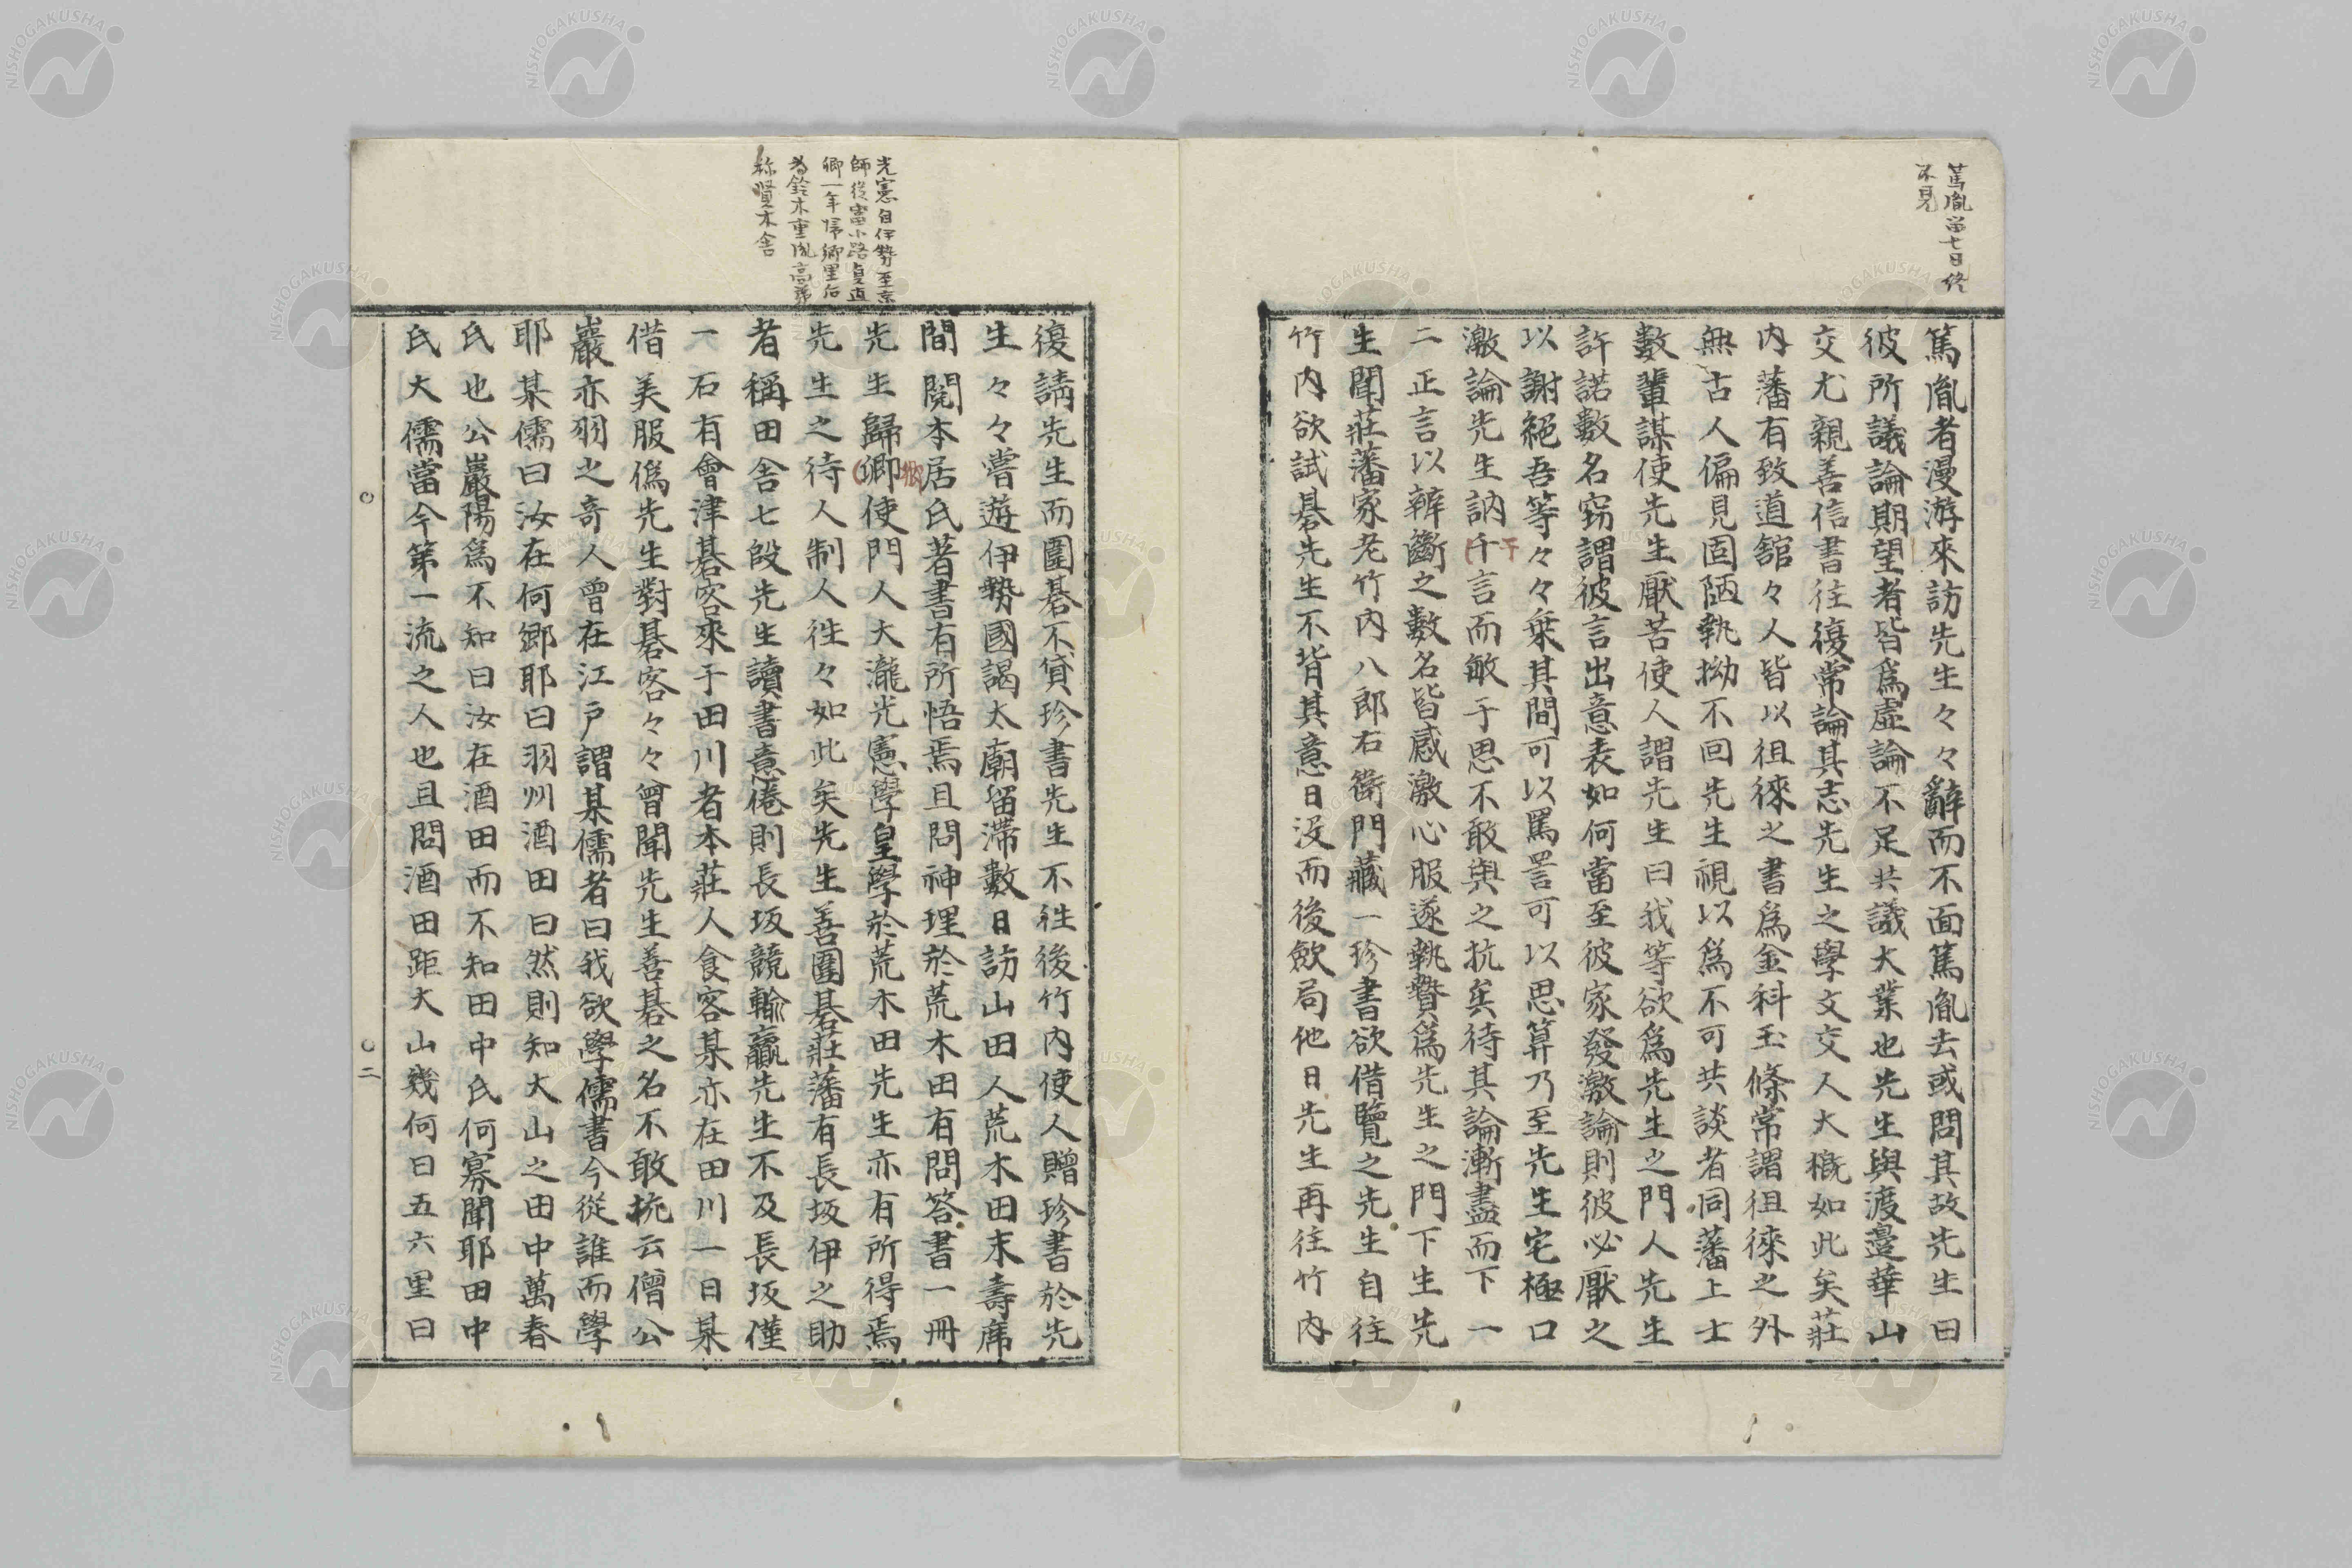 篤胤留七日終
不見
篤胤者漫游來訪先生々々辭而不面篤胤去或問其故先生曰
彼所議論期望者皆爲虛論不足共議大業也先生與渡邉華山
交尤親善信書往復常論其志先生之學文交人大槪如此矣莊
内藩有致道舘々人皆以徂徠之書爲金科玉條常謂徂徠之外
無古人偏見固陋執拗不回先生視以爲不可共談者同藩上士
數輩謀使先生厭苦使人謂先生曰我等欲爲先生之門人先生
許諾數名窃謂彼言出意表如何當至彼家發激論則彼必厭之
以謝絕吾等々々乗其間可以罵詈可以思算乃至先生宅極口
激論先生訥千言而敏于思不敢與之抗矣待其論漸盡而下一
二正言以辨斷之數名皆感激心服遂執贄爲先生之門下生先
生聞莊藩家老竹内八郎右衛門藏一珍書欲借覽之先生自往
竹内欲試碁先生不背其意日没而後歛局他日先生再往竹内
光憲自伊勢至京
師從富小路貞直
卿一年帰郷里后
為鈴木重胤高弟
称賢木舎
復請先生而圍碁不貸珍書先生不徃後竹内使人贈珍書於先
生々々嘗遊伊勢國謁太廟留滯數日訪山田人荒木田末壽席
間閲本居氏著書有所悟焉且問神理於荒木田有問答書一冊
先生歸卿使門人大瀧光憲學皇學於荒木田先生亦有所得焉
先生之待人制人徃々如此矣先生善圍碁莊藩有長坂伊之助
者稱田舎七段先生讀書意倦則長坂競輸贏先生不及長坂僅
一石有會津碁客來于田川者本莊人食客某亦在田川一日某
借美服僞先生對碁客々々曾聞先生善碁之名不敢抗云僧公
巖亦羽之奇人曾在江戸謂某儒者曰我欲學儒書今從誰而學
耶某儒曰汝在何鄉耶曰羽州酒田曰然則知大山之田中萬春
氏也公巖陽爲不知曰汝在酒田而不知田中氏何寡聞耶田中
氏大儒當今第一流之人也且問酒田距大山幾何曰五六里曰
二